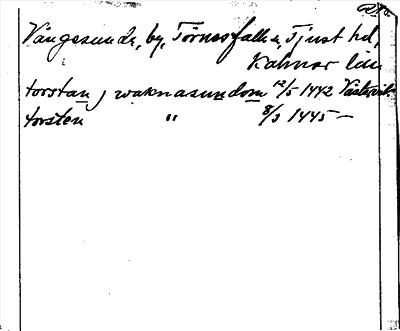 Vångesunda, by, Törnesfalla s, Tjust hd,
Kalmar län
torstan j waknasundom 12/5 1442 Västervik
torsten " 8/3 1445 —